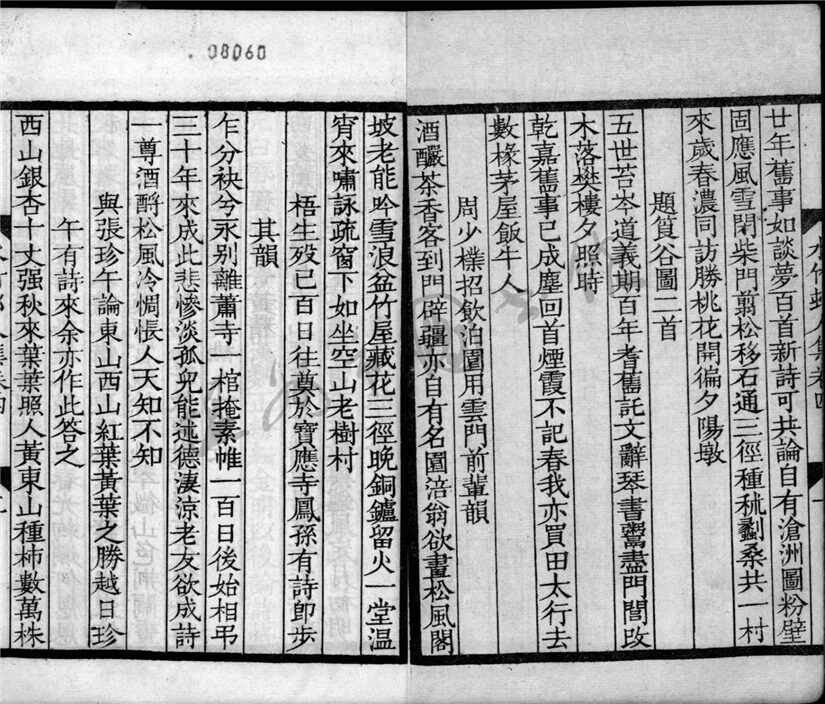 08060
廿年舊事如談夢百首新詩可共論自有滄洲圖粉壁
固應風雪閑柴門翦松移石通三徑種秫劚桑共一村
來歲春濃同訪勝桃花開徧夕陽墩
題篔谷圖二首
五世苔岑道義期百年耆舊託文辭琴書鬻盡門閭改
木落樊樓夕照時
乾嘉舊事已成塵回首煙霞不記春我亦買田太行去
數椽茅屋飯牛人
周少樸招飲泊園用雲門前輩韻
酒釅茶香客到門辟疆亦自有名園涪翁欲畫松風閣
坡老能吟雪浪盆竹屋藏花三徑晚銅鑪留火一堂溫
宵來嘯詠疏窗下如坐空山老樹村
梧生歿已百日往奠於寶應寺鳳孫有詩卽步
其韻
乍分袂兮永別離蕭寺一棺掩素帷一百日後始相弔
三十年來成此悲慘淡孤兒能述德淒涼老友欲成詩
一尊酒酹松風冷惆悵人天知不知
與張珍午論東山西山紅葉黃葉之勝越日珍
午有詩來余亦作此答之
西山銀杏十丈强秋來葉葉照人黃東山種柿數萬株